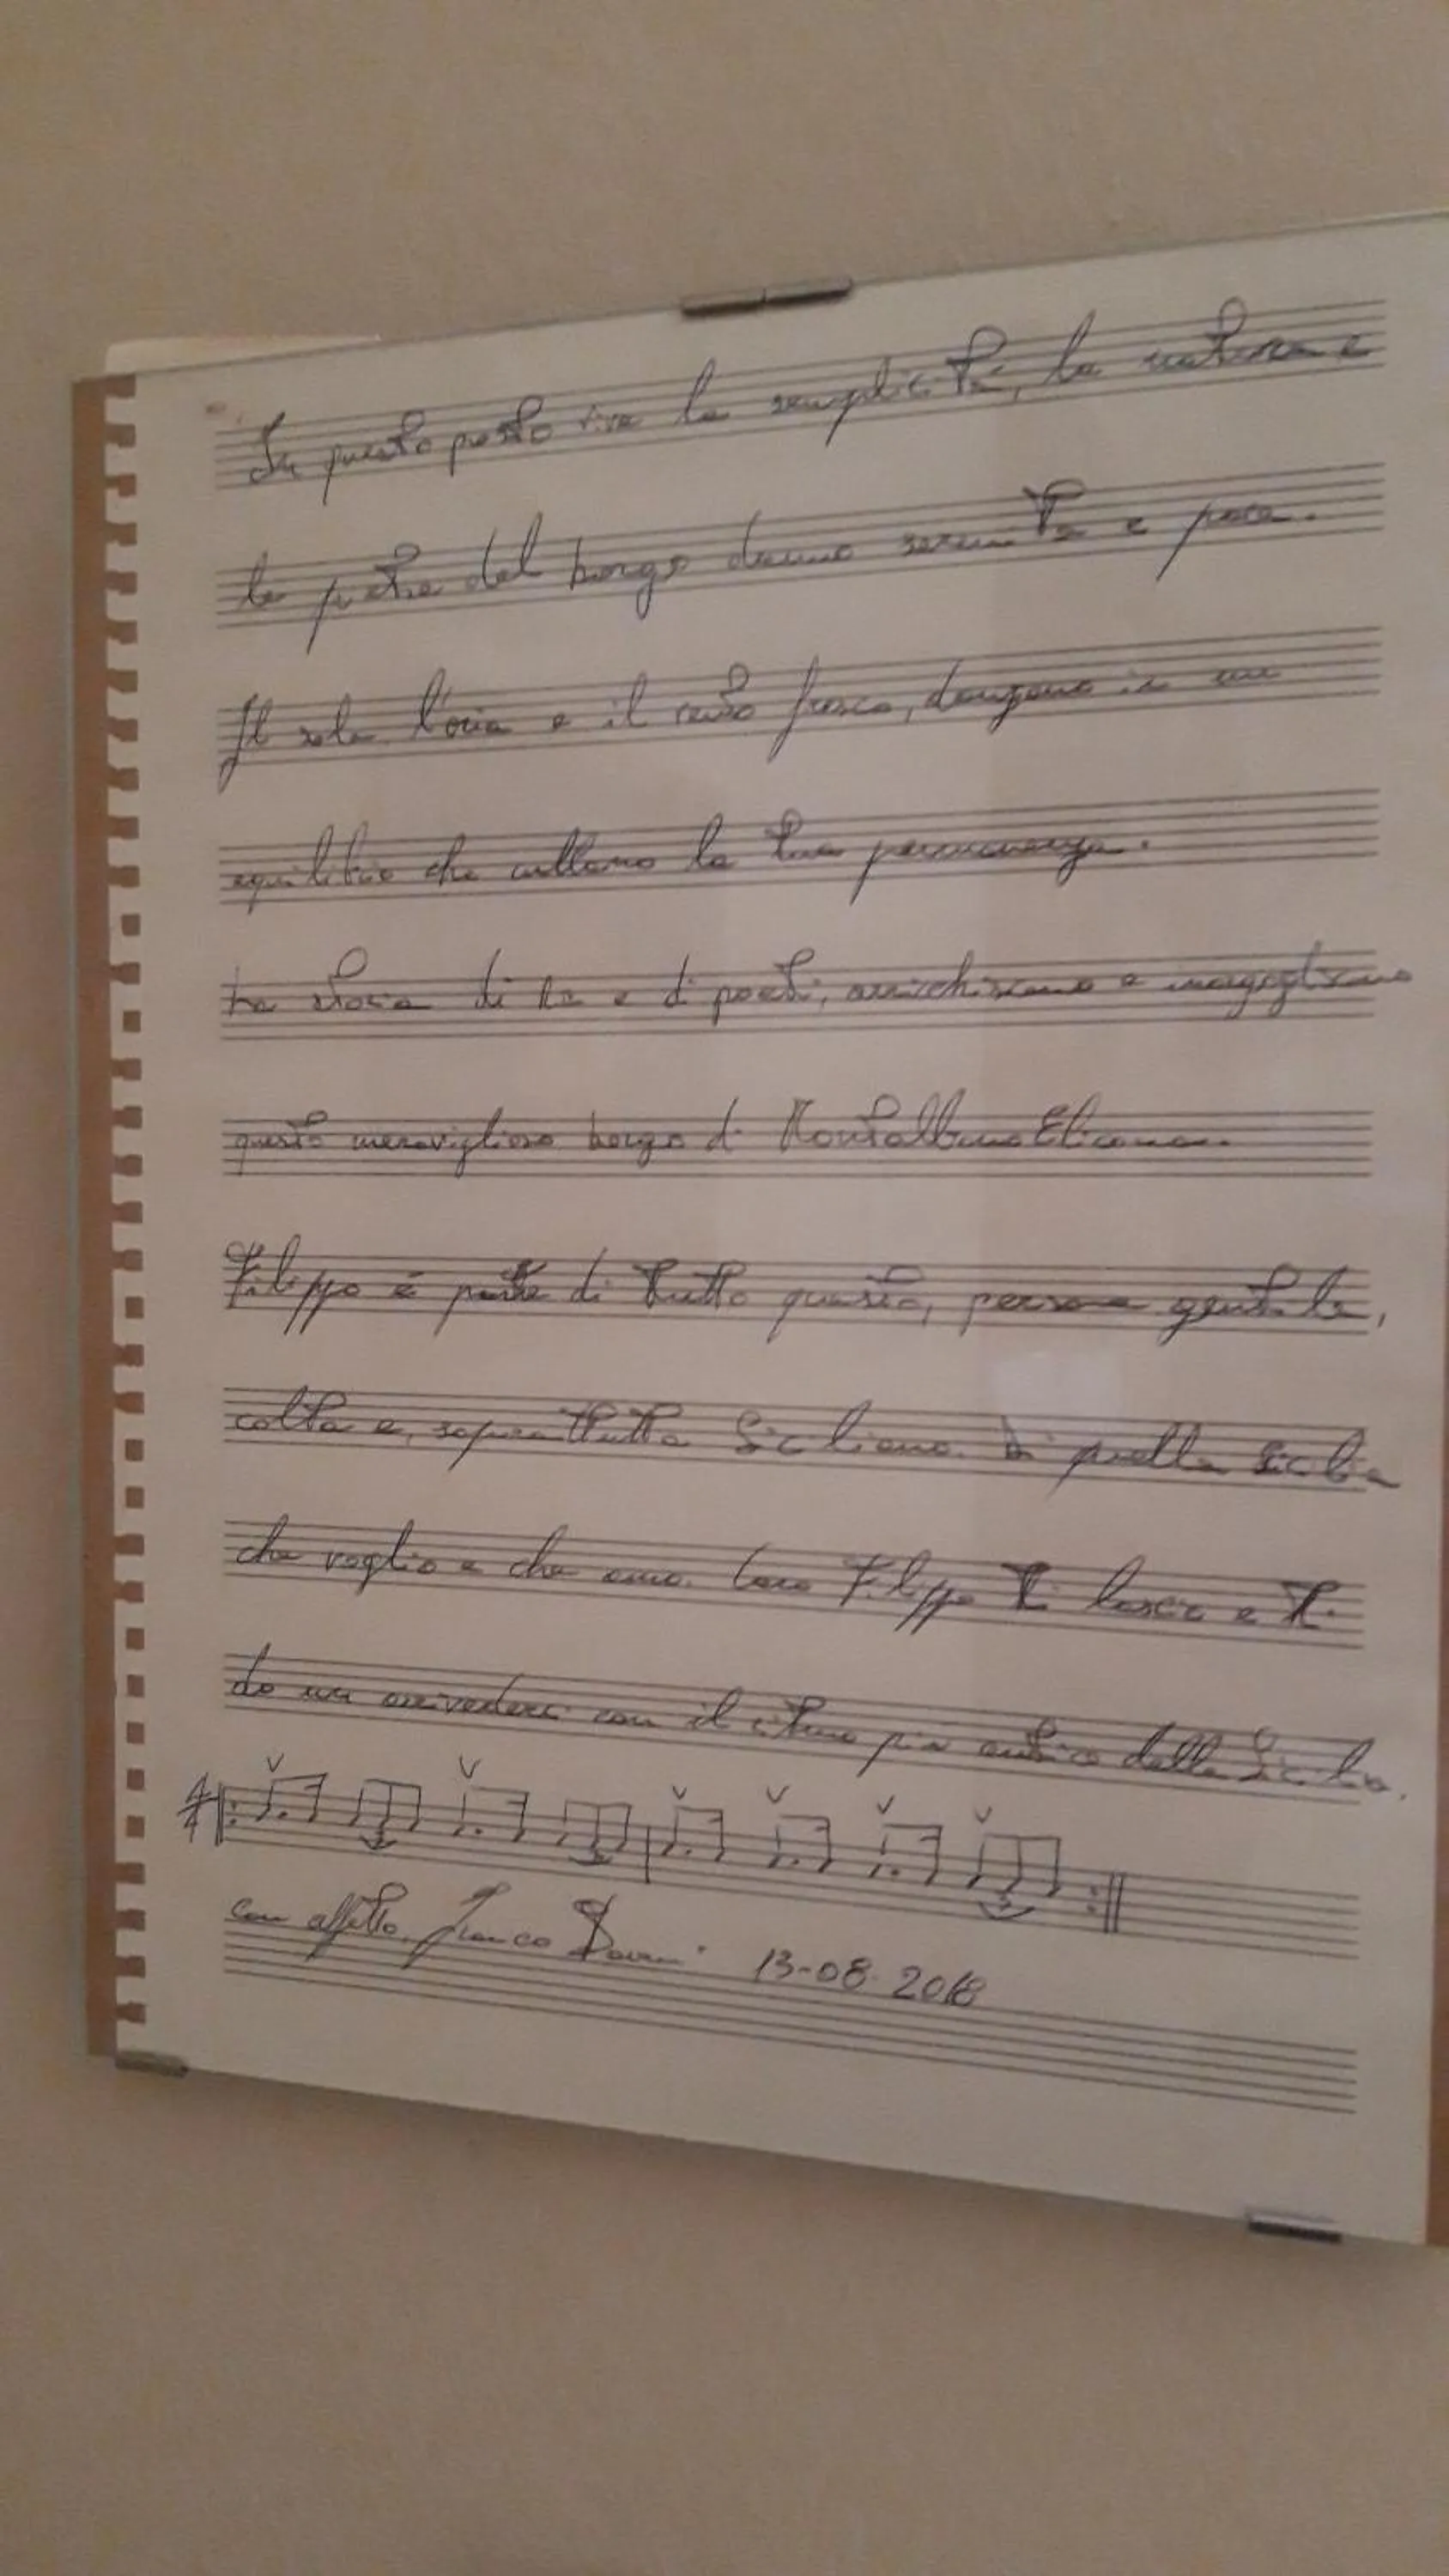 In questo posto vive la semplicità, la natura e
le pietre del borgo danno serenità e pace.
Il sole l'aria e il vento fresco, danzano in un
equilibrio che cullano la tua permanenza.
La storia di Re e di poeti, arricchiscono e
questo meraviglioso borgo di Montalbano Elicona.
Filippo è parte di tutto questo, persona gentile,
colta e, soprattutto Siciliano. Di quella Sicilia
che voglio e che amo. Caro Filippo Ti lascio e Ti
do un arrivederci con il ritmo più antico della Sicilia.
4/4
3 3 3
con affetto. Franco 13-08-2018